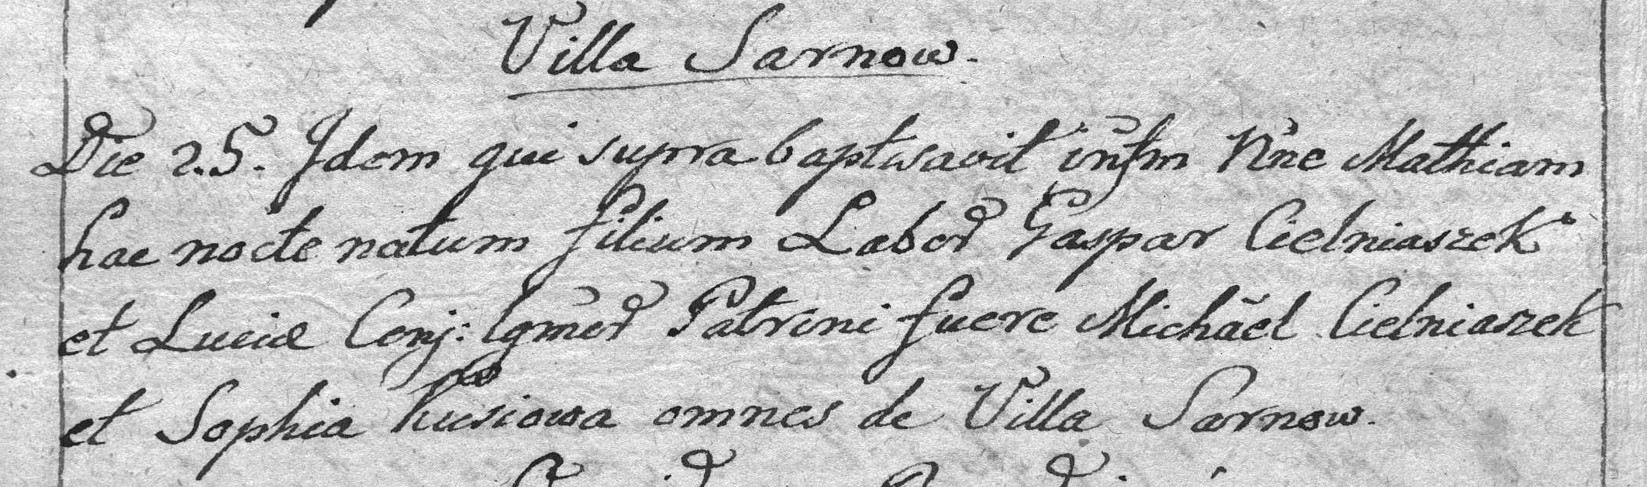 Villa Sarnow.
Die 25. Jdem qui supra baptisavit infm Nne Mathiam
hac nocte natum filium Labor Gaspar Cielniaszek
et Luciæ Conj: lgmor Patrini fuere Michãel Cielniaszek
et Sophia Kusiowa omnes de Villa Sarnow.